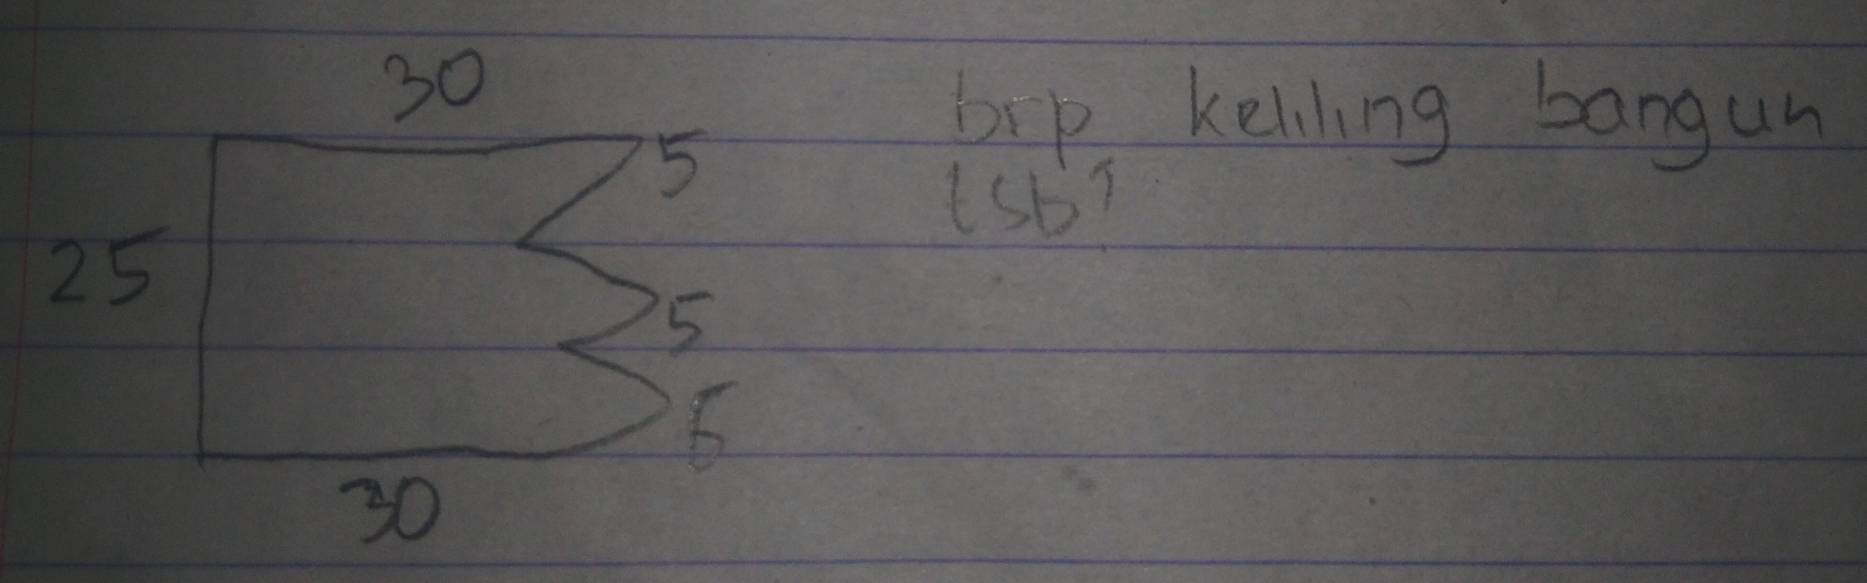 30
brp keliling bangun
5
tsb?
25
5
5
30